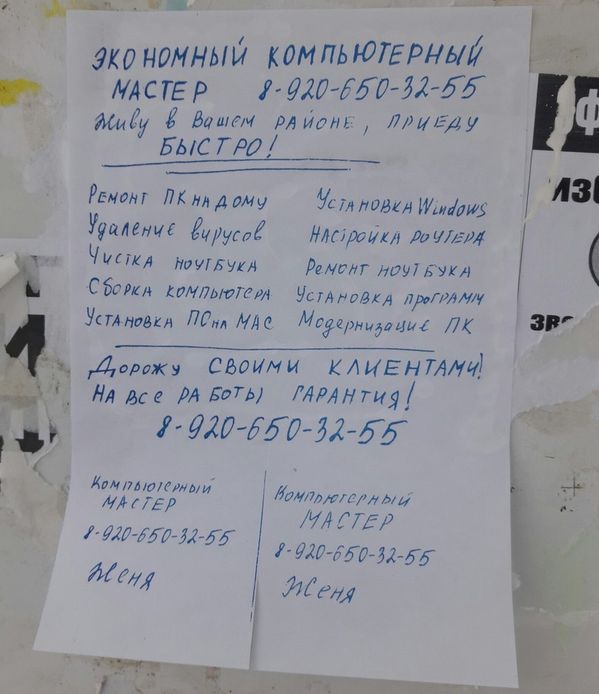 ЭКОНОМНЫЙ КОМПЬЮТЕРНЫЙ
МАСТЕР 8-920-650-32-55
Живу в Вашем РАЙОНЕ, ПРИЕДУ
БЫСТРО!
Ремонт ПК на дому
Установка Windows
Удаление вирусов
Настройка роутера
Чистка ноутбука
Ремонт ноутбука
Сборка компьютера
Установка программ
Установка ПО на МАС
Модернизация ПК
Дорожу своими клиентами!
На все работы гарантия!
8-920-650-32-55
Компьютерный
МАСТЕР
8-920-650-32-55
Женя
Компьютерный
МАСТЕР
8-920-650-32-55
Женя
ИЗ
ЗВО